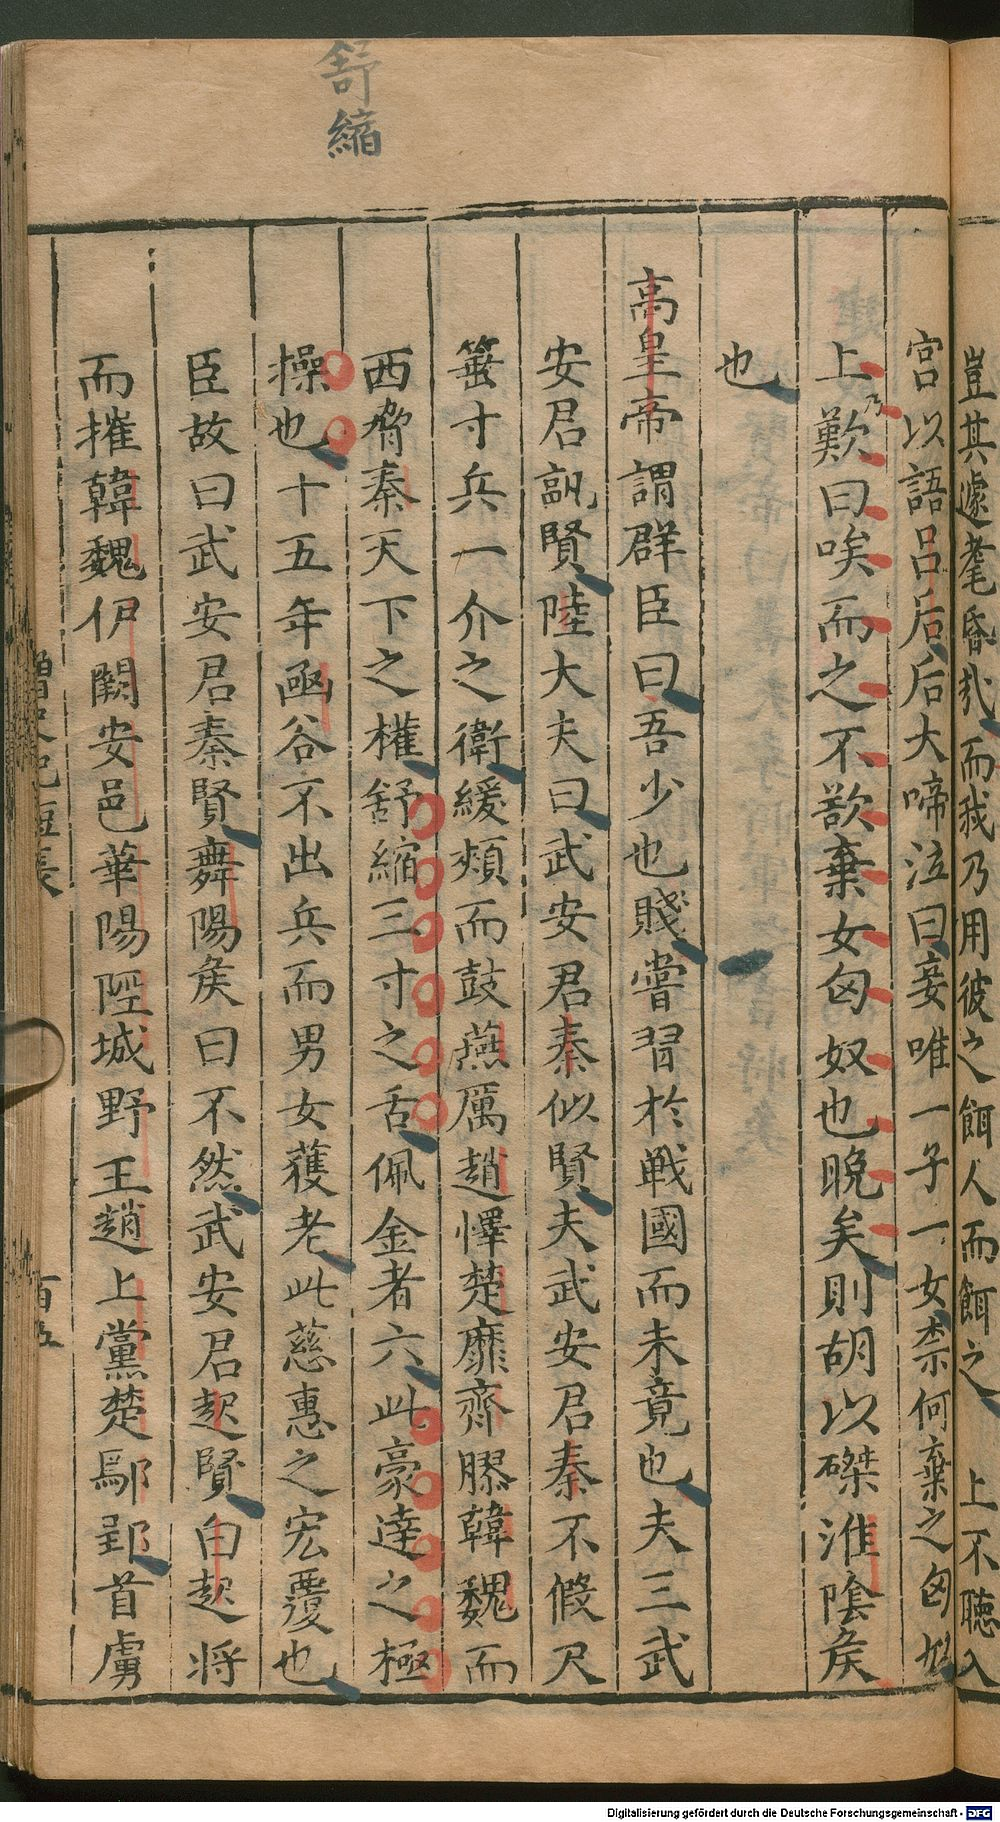 舒縮
豈其遽耄昏哉而我乃用彼之餌人而餌之上不聽入
宮以語呂后后大啼泣曰妾唯一子一女柰何棄之匈奴
上乃歎曰唉而之不欲棄女匈奴也晚矣則胡以磔淮陰矦
也
高皇帝謂群臣曰吾少也賤嘗習於戰國而未竟也夫三武
安君孰賢陸大夫曰武安君秦似賢夫武安君秦不假尺
箠寸兵一介之衛緩頰而鼓燕厲趙懌楚靡齊膠韓魏而
西脅秦天下之權舒縮三寸之舌佩金者六此豪達之極
操也十五年函谷不出兵而男女蒦老此慈惠之宏覆也
臣故曰武安君秦賢舞陽矦曰不然武安君起賢白起將
而摧韓魏伊闕安邑華陽陘城野王趙上黨楚鄢郢首虜
短長
百五
Digitalisierung gefördert durch die Deutsche Forschungsgemeinschaft - DFG